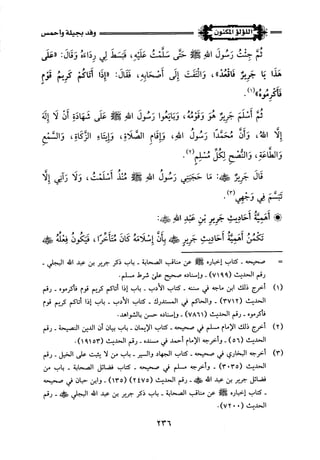 اللؤلؤ المكنون
وفد بجيلة وأحمس
ثُمَّ جِئْتُ رَسُولَ اللهِ ﷺ حَتَّى سَلَّمْتُ عَلَيْهِ، فَبَسَطَ لِي رِدَاءَهُ وَقَالَ: «عَلَى
هَذَا يَا جَرِيرُ فَاقْعُدْ»، وَالْتَفَتَ إِلَى أَصْحَابِهِ، فَقَالَ: «إِذَا أَتَاكُمْ كَرِيمُ قَوْمٍ
فَأَكْرِمُوهُ»(١).
ثُمَّ أَسْلَمَ جَرِيرٌ هُوَ وَقَوْمُهُ، وَبَايَعُوا رَسُولَ اللهِ ﷺ عَلَى شَهَادَةِ أَنْ لَا إِلَهَ
إِلَّا اللهُ، وَأَنَّ مُحَمَّدًا رَسُولُ اللهِ، وَإِقَامِ الصَّلَاةِ، وَإِيتَاءِ الزَّكَاةِ، وَالسَّمْعِ
وَالطَّاعَةِ، وَالنُّصْحِ لِكُلِّ مُسْلِمٍ(٢).
قَالَ جَرِيرٌ ﷺ: مَا حَجَبَنِي رَسُولُ اللهِ ﷺ مُنْذُ أَسْلَمْتُ، وَلَا رَآنِي إِلَّا
تَبَسَّمَ فِي وَجْهِي(٣).
◉ أَهَمِّيَّةُ أَحَادِيثِ جَرِيرِ بْنِ عَبْدِ اللهِ ﷺ:
تَكْمُنُ أَهَمِّيَّةُ أَحَادِيثِ جَرِيرٍ ﷺ بِأَنَّ إِسْلَامَهُ كَانَ مُتَأَخِّرًا، فَيَكُونُ نَقْلُهُ ﷺ
= صحيحه - كتاب إخباره ﷺ عن مناقب الصحابة - باب ذكر جرير بن عبد الله البجلي -
رقم الحديث (٧١٩٩) - وإسناده صحيح على شرط مسلم.
(١) أخرج ذلك ابن ماجه في سننه - كتاب الأدب - باب إذا أتاكم كريم قوم فأكرموه - رقم
الحديث (٣٧١٢) - والحاكم في المستدرك - كتاب الأدب - باب إذا أتاكم كريم قوم
فأكرموه - رقم الحديث (٧٨٦١) - وإسناده حسن بالشواهد.
(٢) أخرج ذلك الإمام مسلم في صحيحه - كتاب الإيمان - باب بيان أن الدين النصيحة - رقم
الحديث (٥٦) - وأخرجه الإمام أحمد في مسنده - رقم الحديث (١٩١٥٣).
(٣) أخرجه البخاري في صحيحه - كتاب الجهاد والسير - باب من لا يثبت على الخيل - رقم
الحديث (٣٠٣٥) - وأخرجه مسلم في صحيحه - كتاب فضائل الصحابة - باب من
فضائل جرير بن عبد الله ﷺ - رقم الحديث (٢٤٧٥) (١٣٥) - وابن حبان في صحيحه
- كتاب إخباره ﷺ عن مناقب الصحابة - باب ذكر جرير بن عبد الله البجلي ﷺ - رقم
الحديث (٧٢٠٠).
٢٣٦